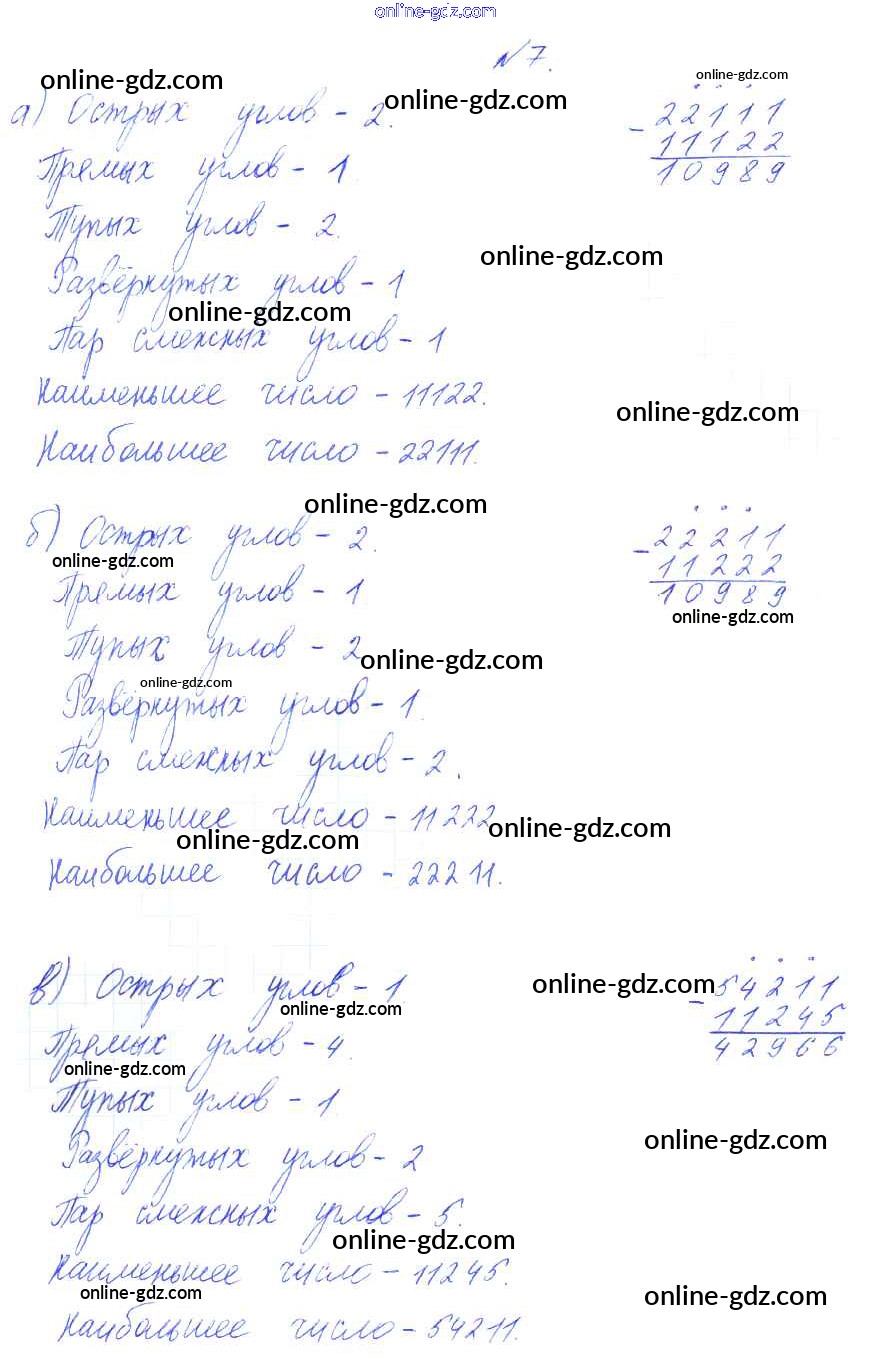 online-gdz.com
№7.
online-gdz.com
online-gdz.com
online-gdz.com
а) Острых углов - 2.
- 22111
11122
10989
Прямых углов - 1.
Тупых углов - 2.
online-gdz.com
Развёрнутых углов - 1
online-gdz.com
Пар смежных углов - 1
Наименьшее число - 11122.
online-gdz.com
Наибольшее число - 22111.
online-gdz.com
б) Острых углов - 2.
- 22211
11222
10989
online-gdz.com
Прямых углов - 1
online-gdz.com
Тупых углов - 2
online-gdz.com
online-gdz.com
Развёрнутых углов - 1.
Пар смежных углов - 2.
Наименьшее число - 11222
online-gdz.com
online-gdz.com
Наибольшее число - 22211.
в) Острых углов - 1.
online-gdz.com
- 54211
11245
42966
online-gdz.com
Прямых углов - 4.
online-gdz.com
Тупых углов - 1.
online-gdz.com
Развёрнутых углов - 2
Пар смежных углов - 5.
online-gdz.com
Наименьшее число - 11245.
online-gdz.com
online-gdz.com
Наибольшее число - 54211.